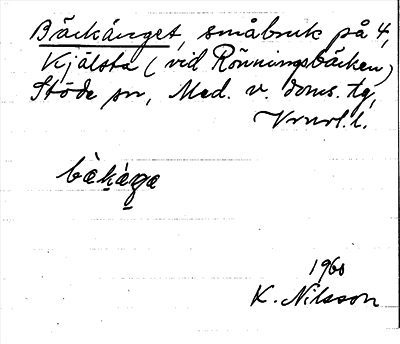 Bäckänget, småbruk på 4,
Kjälsta (vid Rönningsbäcken)
Stöde sn, Med. v. doms. tg,
Vrnrl. l.
bèkága
1960
K. Nilsson